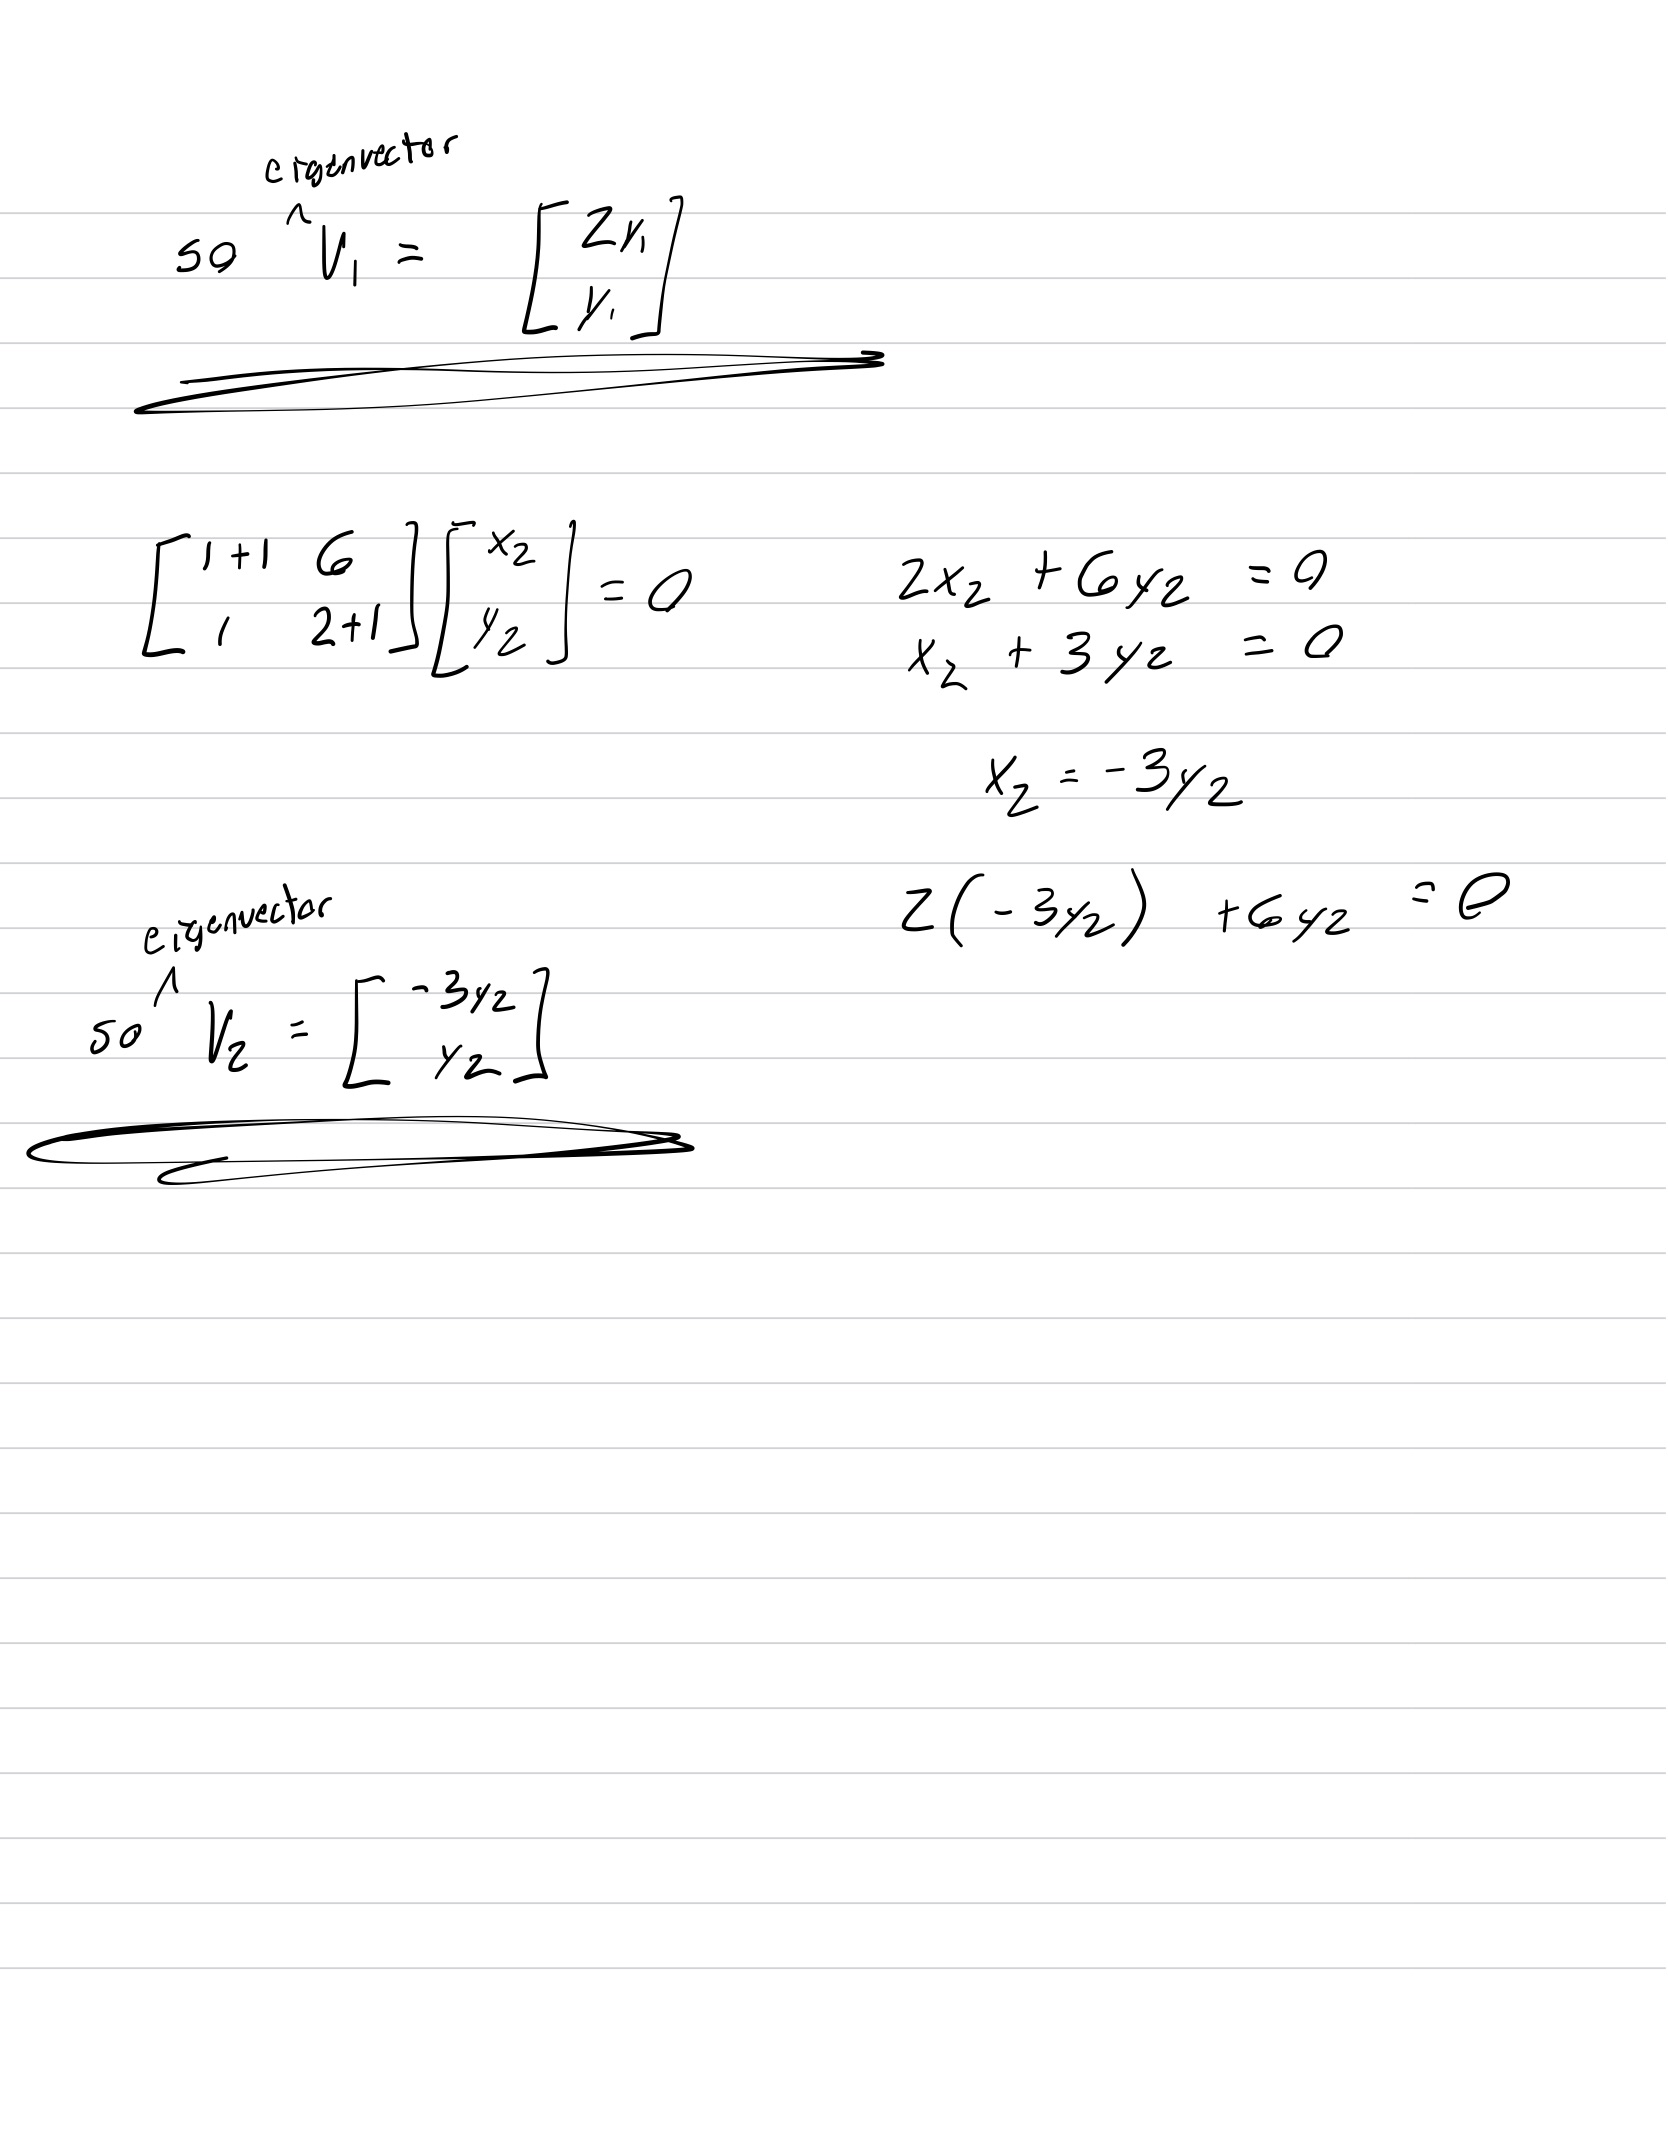 eigenvector
so ^ V₁ = [2y₁
y₁]
[1+1 6
1 2+1] [x₂
y₂] = 0
2x₂ + 6y₂ = 0
x₂ + 3y₂ = 0
x₂ = -3y₂
2(-3y₂) + 6y₂ = 0
eigenvector
so ^ V₂ = [-3y₂
y₂]